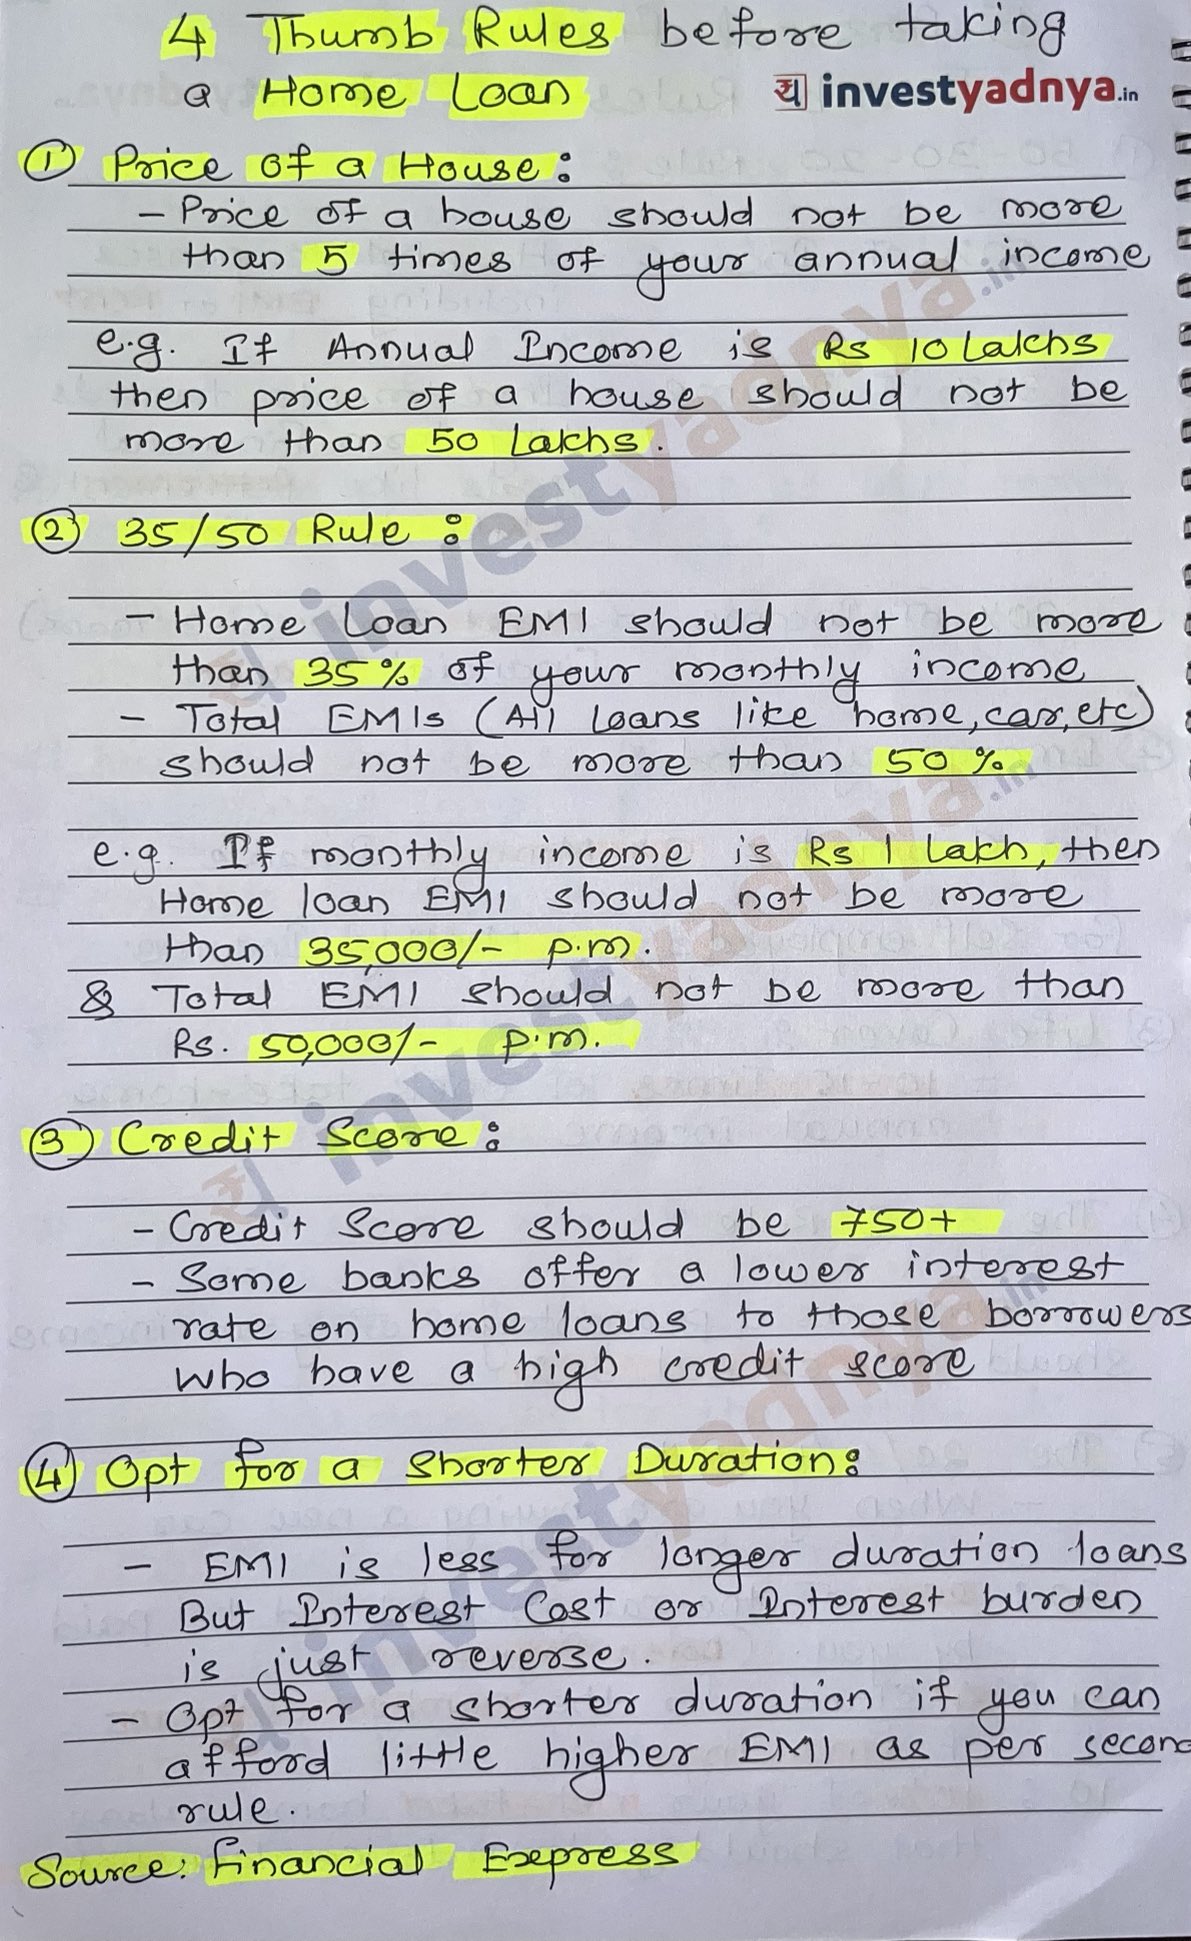 4 Thumb Rules before taking
a Home Loan
investyadnya.in
① Price of a House:
- Price of a house should not be more
than 5 times of your annual income
e.g. If Annual Income is Rs 10 Lakhs
then price of a house should not be
more than 50 Lakhs.
② 35/50 Rule:
- Home Loan EMI should not be more
than 35% of your monthly income
- Total EMIs (All loans like home, car, etc)
should not be more than 50%
e.g. If monthly income is Rs 1 Lakh, then
Home loan EMI should not be more
than 35,000/- p.m.
& Total EMI should not be more than
Rs. 50,000/- p.m.
③ Credit Score:
- Credit Score should be 750+
- Some banks offer a lower interest
rate on home loans to those borrowers
who have a high credit score
④ Opt for a Shorter Duration:
- EMI is less for longer duration loans
But Interest Cost or Interest burden
is just reverse.
- Opt for a shorter duration if you can
afford little higher EMI as per second
rule.
Source: Financial Express